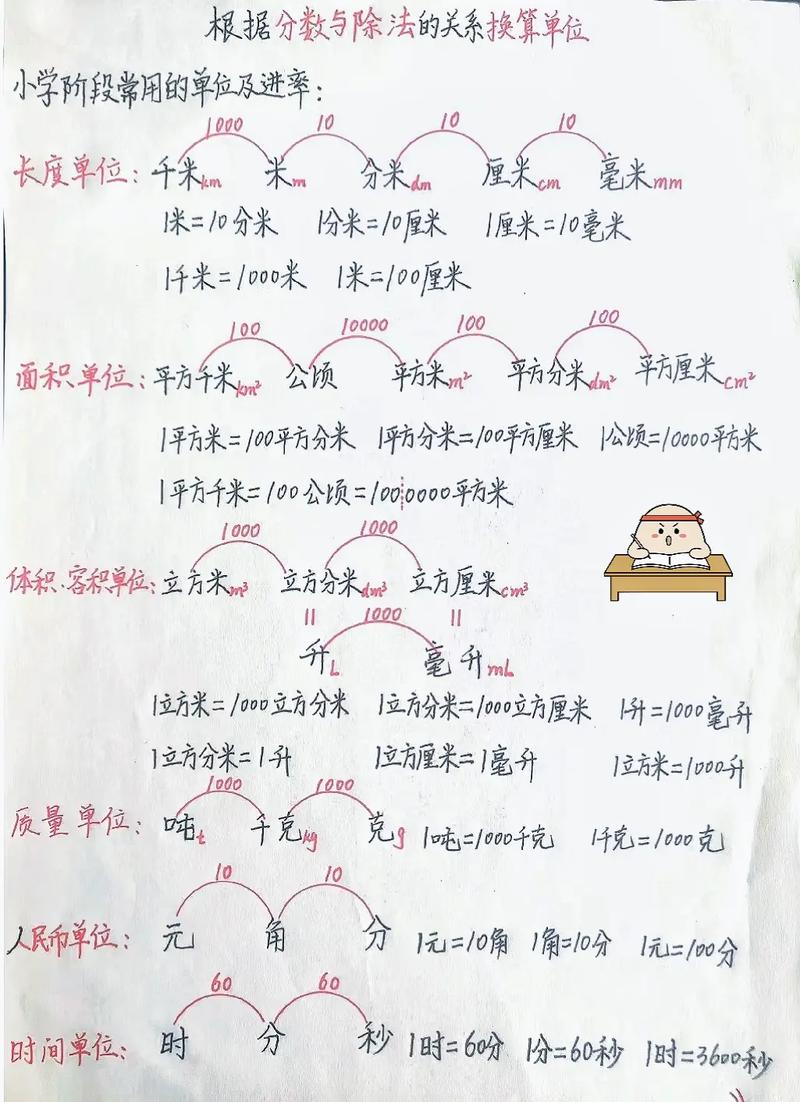 根据分数与除法的关系换算单位
小学阶段常用的单位及进率:
1000 10 10 10
长度单位: 千米km 米m 分米dm 厘米cm 毫米mm
1米=10分米 1分米=10厘米 1厘米=10毫米
1千米=1000米 1米=100厘米
100 10000 100 100
面积单位: 平方千米km² 公顷 平方米m² 平方分米dm² 平方厘米cm²
1平方米=100平方分米 1平方分米=100平方厘米 1公顷=10000平方米
1平方千米=100公顷=1000000平方米
1000 1000
体积、容积单位: 立方米m³ 立方分米dm³ 立方厘米cm³
= 1000 =
升L 毫升mL
1立方米=1000立方分米 1立方分米=1000立方厘米 1升=1000毫升
1立方分米=1升 1立方厘米=1毫升 1立方米=1000升
1000 1000
质量单位: 吨t 千克kg 克g 1吨=1000千克 1千克=1000克
10 10
人民币单位: 元 角 分 1元=10角 1角=10分 1元=100分
60 60
时间单位: 时 分 秒 1时=60分 1分=60秒 1时=3600秒